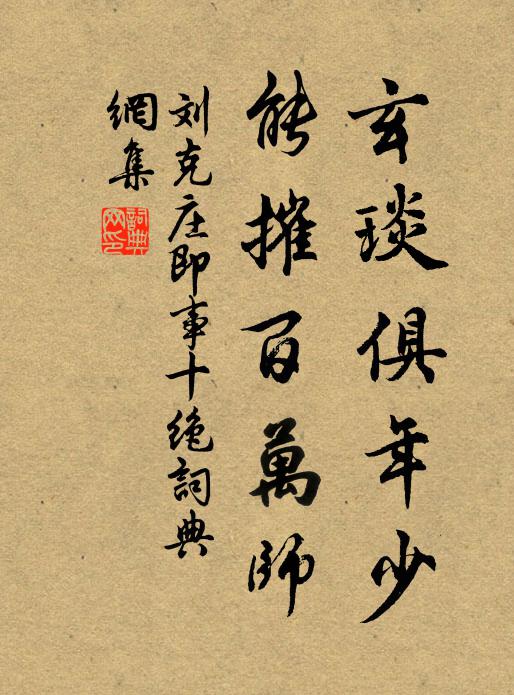 玄琰俱年少
能摧百萬師
刘克庄即事十绝詞典
網集
詞典
网印